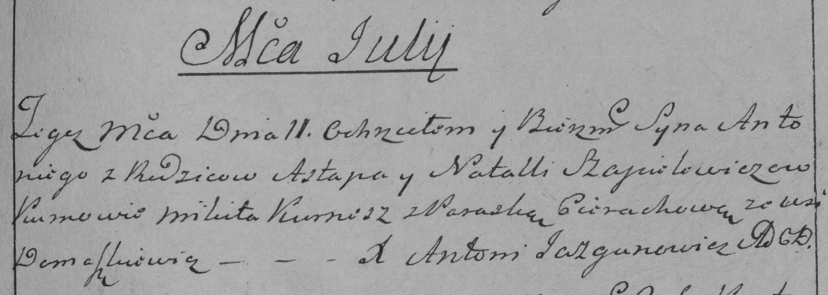 Mča Julij
Tegoż Mča Dnia 11. Ochrzciłem y Bierzm Syna Anto
niego z Rodzicow Astapa y Natalli Szapielowiczow
Kumowie Mikita Kurnesz z Paraską Cierachową ze wsi
Domaszkiewicz - - - X Antoni Jazgunowicz